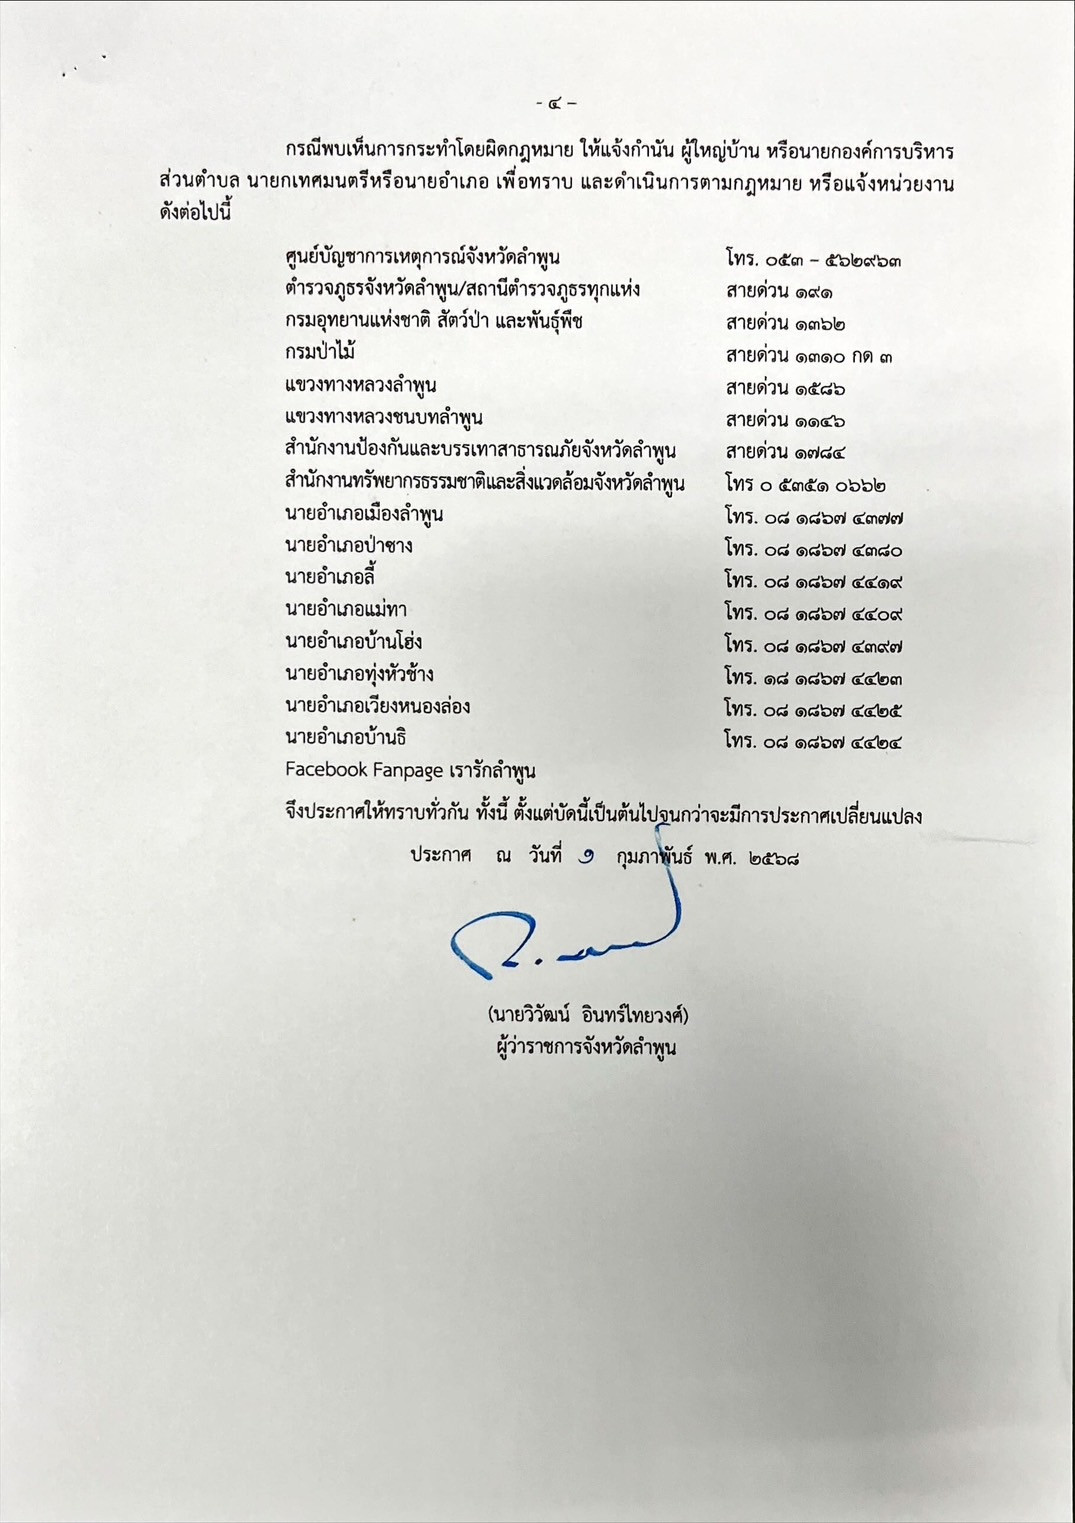 - ๔ –
กรณีพบเห็นการกระทำโดยผิดกฎหมาย ให้แจ้งกำนัน ผู้ใหญ่บ้าน หรือนายกองค์การบริหาร
ส่วนตำบล นายกเทศมนตรีหรือนายอำเภอ เพื่อทราบ และดำเนินการตามกฎหมาย หรือแจ้งหน่วยงาน
ดังต่อไปนี้
ศูนย์บัญชาการเหตุการณ์จังหวัดลำพูน โทร. ๐๕๓ – ๕๖๒๙๖๓
ตำรวจภูธรจังหวัดลำพูน/สถานีตำรวจภูธรทุกแห่ง สายด่วน ๑๙๑
กรมอุทยานแห่งชาติ สัตว์ป่า และพันธุ์พืช สายด่วน ๑๓๖๒
กรมป่าไม้ สายด่วน ๑๓๑๐ กด ๓
แขวงทางหลวงลำพูน สายด่วน ๑๕๘๖
แขวงทางหลวงชนบทลำพูน สายด่วน ๑๑๔๖
สำนักงานป้องกันและบรรเทาสาธารณภัยจังหวัดลำพูน สายด่วน ๑๗๘๔
สำนักงานทรัพยากรธรรมชาติและสิ่งแวดล้อมจังหวัดลำพูน โทร ๐ ๕๓๕๑ ๐๖๖๒
นายอำเภอเมืองลำพูน โทร. ๐๘ ๑๘๖๗ ๔๓๗๗
นายอำเภอป่าซาง โทร. ๐๘ ๑๘๖๗ ๔๓๘๐
นายอำเภอลี้ โทร. ๐๘ ๑๘๖๗ ๔๔๑๙
นายอำเภอแม่ทา โทร. ๐๘ ๑๘๖๗ ๔๔๐๙
นายอำเภอบ้านโฮ่ง โทร. ๐๘ ๑๘๖๗ ๔๓๙๗
นายอำเภอทุ่งหัวช้าง โทร. ๑๘ ๑๘๖๗ ๔๔๒๓
นายอำเภอเวียงหนองล่อง โทร. ๐๘ ๑๘๖๗ ๔๔๒๕
นายอำเภอบ้านธิ โทร. ๐๘ ๑๘๖๗ ๔๔๒๔
Facebook Fanpage เรารักลำพูน
จึงประกาศให้ทราบทั่วกัน ทั้งนี้ ตั้งแต่บัดนี้เป็นต้นไปจนกว่าจะมีการประกาศเปลี่ยนแปลง
ประกาศ ณ วันที่ กุมภาพันธ์ พ.ศ. ๒๕๖๘
(นายวิวัฒน์ อินทร์ไทยวงศ์)
ผู้ว่าราชการจังหวัดลำพูน